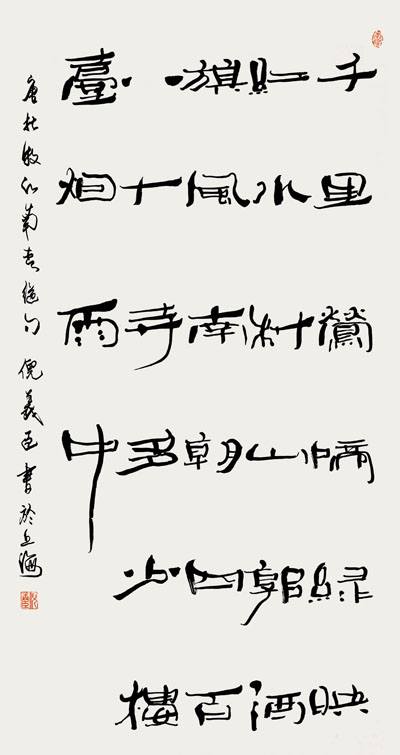 千里鶯啼綠映
紅水村山郭酒
旗風南朝四百
八十寺多少樓
臺烟雨中
唐杜牧江南春絕句 倪義書於上海